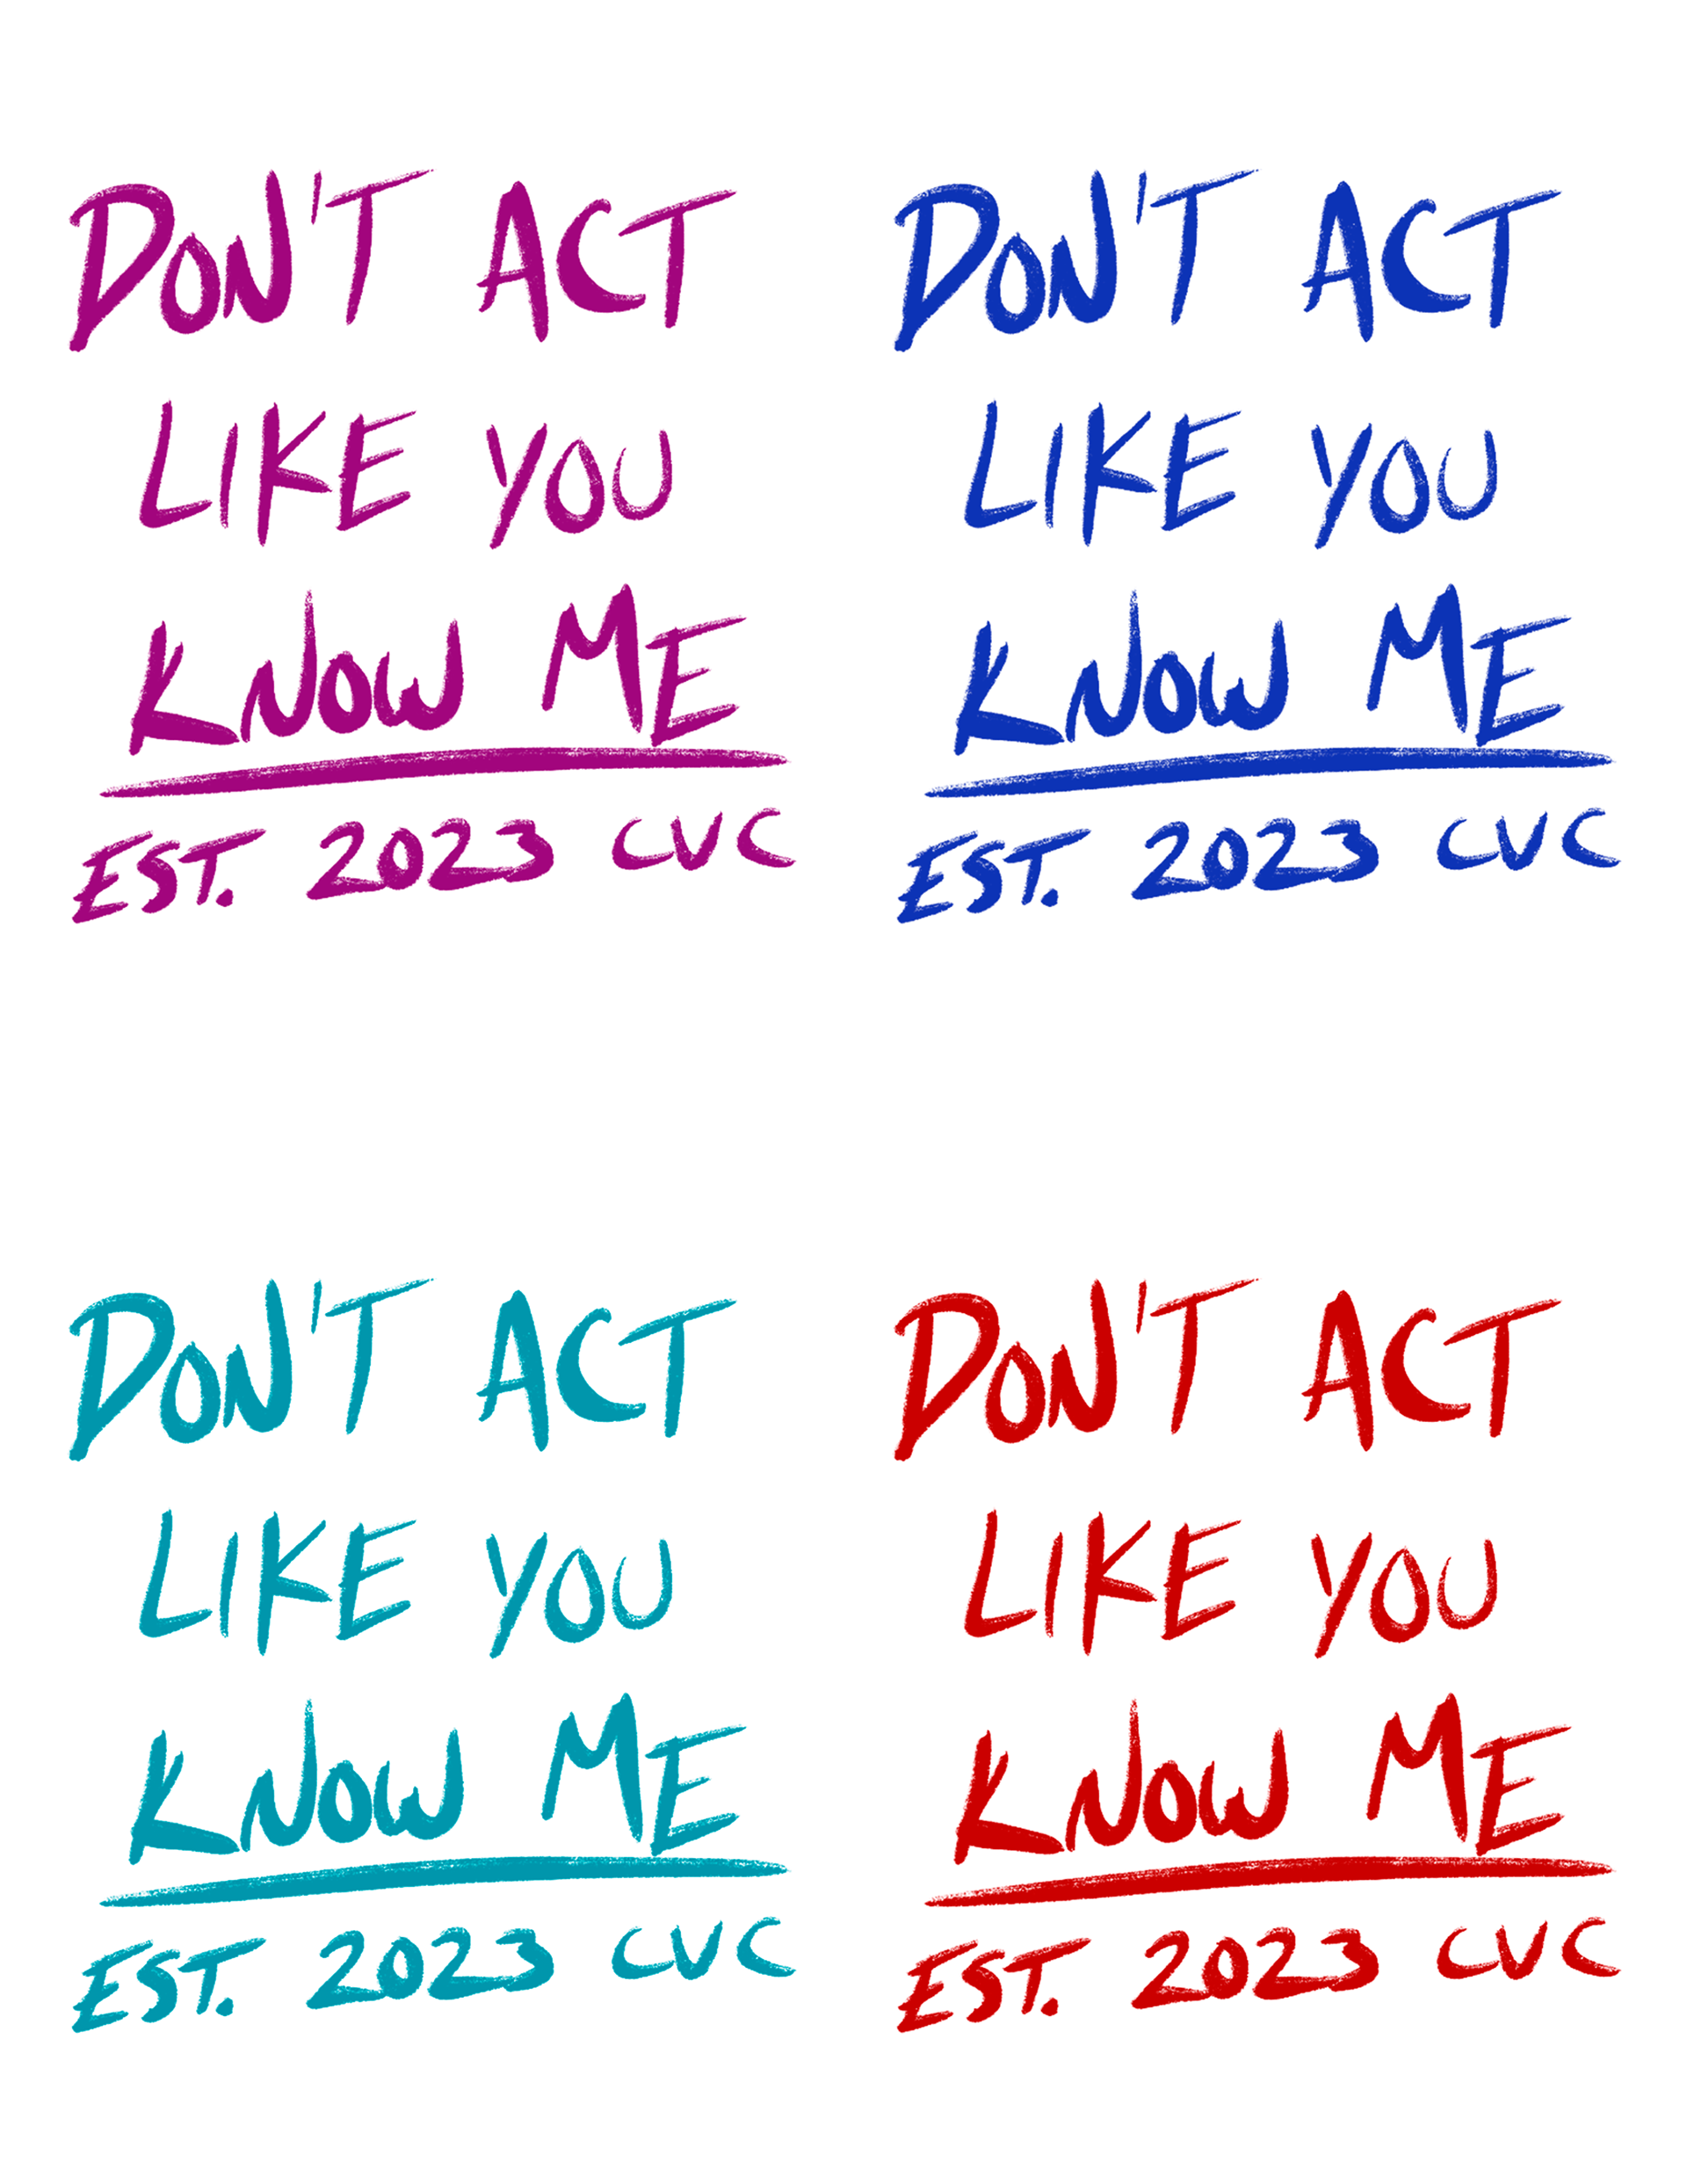 DON'T ACT
LIKE YOU
KNOW ME
EST. 2023 CVC
DON'T ACT
LIKE YOU
KNOW ME
EST. 2023 CVC
DON'T ACT
LIKE YOU
KNOW ME
EST. 2023 CVC
DON'T ACT
LIKE YOU
KNOW ME
EST. 2023 CVC